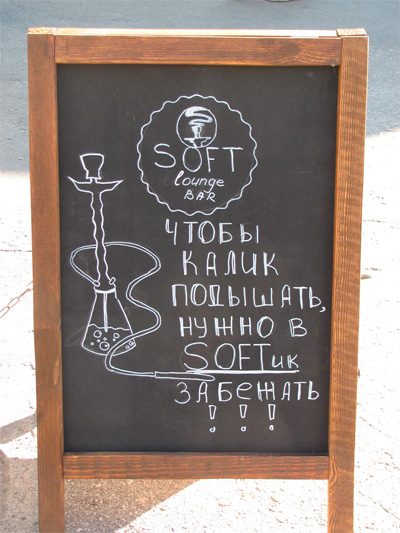 SOFT
lounge
BAR
ЧТОБЫ
КАЛИК
ПОДЫШАТЬ,
НУЖНО В
SOFTик
ЗАБЕЖАТЬ
!!!